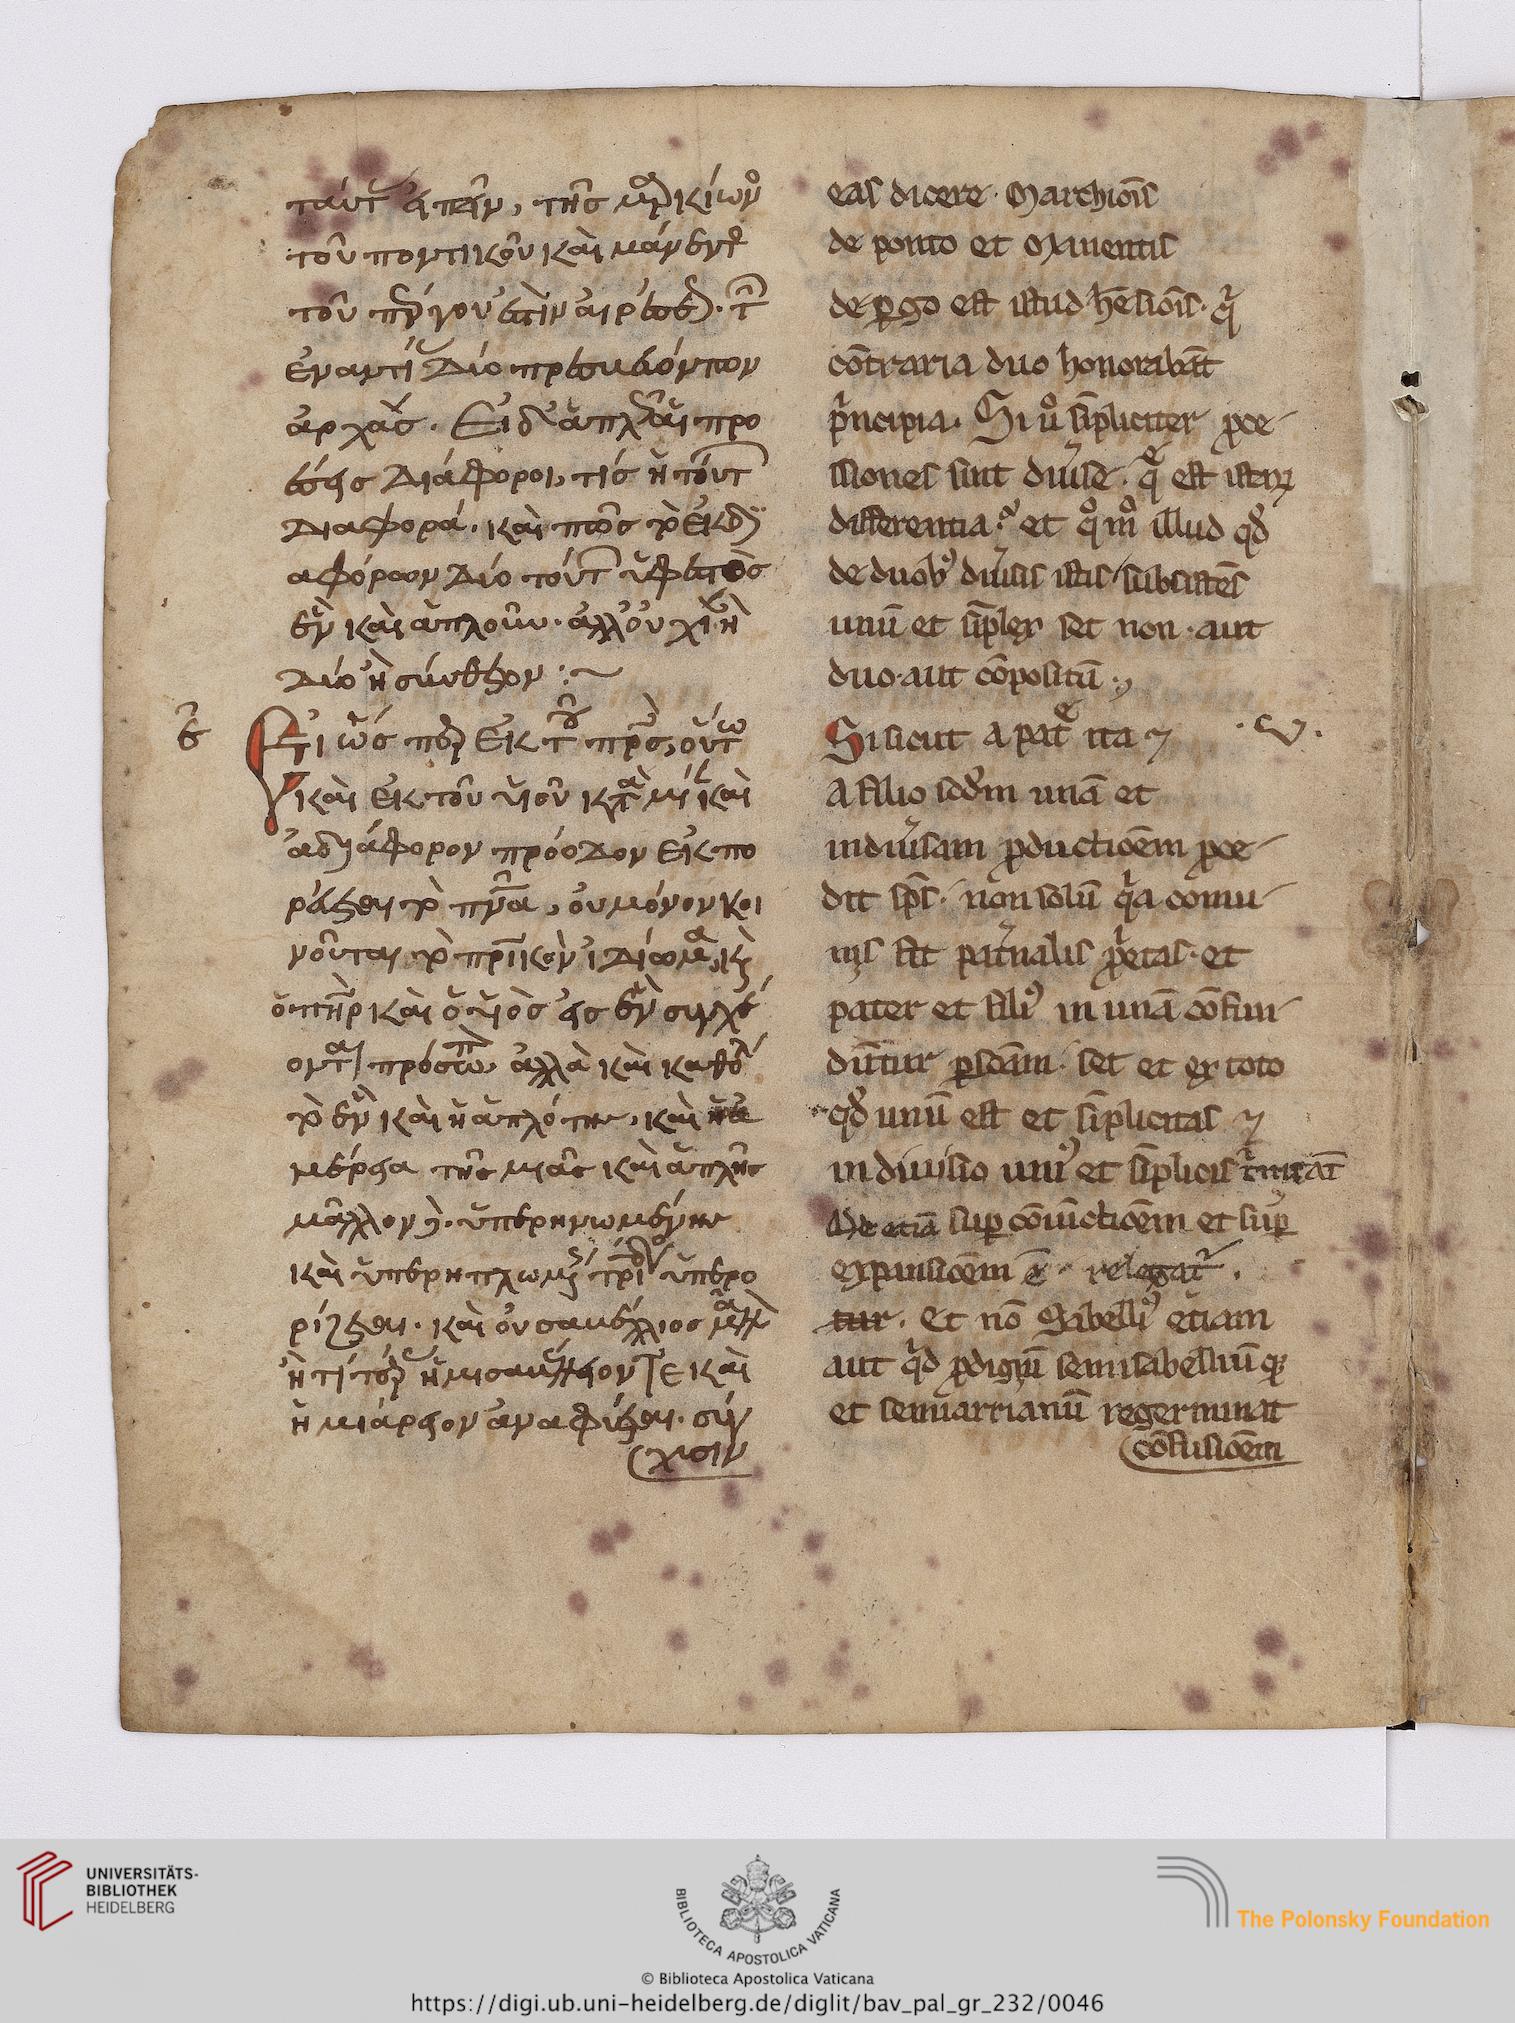 ταύτ εἰπεῖν, τῆς μαρκίων
τοῦ ποντικοῦ καὶ μάνεντ
τοῦ πέργου ἐστὶν αἱρέσε. τ
ἐναντί δύο πρεσβεύοντον
ἀρχὰς. Εἰ δ ἁπλαῖ προ
έσεις διάφοροι, τίς ἡ τούτ
διαφορά. καὶ πῶς τὸ ἐκ δι
αφόρων δύο τούτ ὑφεστὸς
ἓν καὶ ἁπλοῦν. ἀλλ οὐχὶ ἢ
δύο ἢ σύνθετον :~
ε
Ἔτι ὡς περ ἐκ τοῦ πρς, οὕτω
καὶ ἐκ τοῦ υἱοῦ κατὰ μί καὶ
ἀδιάφορον πρόοδον ἐκπο
ρεύεται τὸ πνα, οὐ μόνον κοι
νοῦται τὸ πρικὸν ἰδίωμα, κ
ὁ πηρ καὶ ὁ υἱὸς εἰς ἓν συγχέ
οντ πρόσωπ, ἀλλὰ καὶ καθόλ
τὸ ἓν καὶ ἡ ἁπλότης, καὶ ἡ ἀ
μέρεια τῆς μιᾶς καὶ ἁπλῆς
μᾶλλον. ὑπερηνωμένης
καὶ ὑπερηπλωμ τρι ὑπερο
ρίζεται. καὶ οὐ σαβέλλιος μᾶλλ
ἢ τί τερ ἡμισαβέλλιον τε καὶ
ἡμιάρειον ἀναφύεται. σύγ
χυσιν
eas dicere. Marchiois
de ponto et Manentis
de pgo est istud hesiois. q
cotraria duo honorabat
pncipia. Si u simpliciter pce-
ssiones sint diuise. q est istarum
differentia. et qm illud qd
de duob diuisis istis subsistes
unu et simplex set non. aut
duo. aut copositu.
Si sicut a pat ita 7
.v.
A filio scdm una et
indiuisam pductioem pce-
dit sps. non solu qa comu-
nis fit pat'nalis pprietas. et
pater et fili in una confun-
duntur psoam. set et ex toto
qd unu est et simplicitas 7
indiuisio uni et simplicis trinitat
et etia sup coniuctioem et sup
expansioem e. relegat.
tur. et no Sabelli etiam
aut qd pdigiu semisabelliu q
et semiarrianu regerminat
cofusioem
UNIVERSITÄTS-
BIBLIOTHEK
HEIDELBERG
BIBLIOTECA APOSTOLICA VATICANA
The Polonsky Foundation
© Biblioteca Apostolica Vaticana
https://digi.ub.uni-heidelberg.de/diglit/bav_pal_gr_232/0046